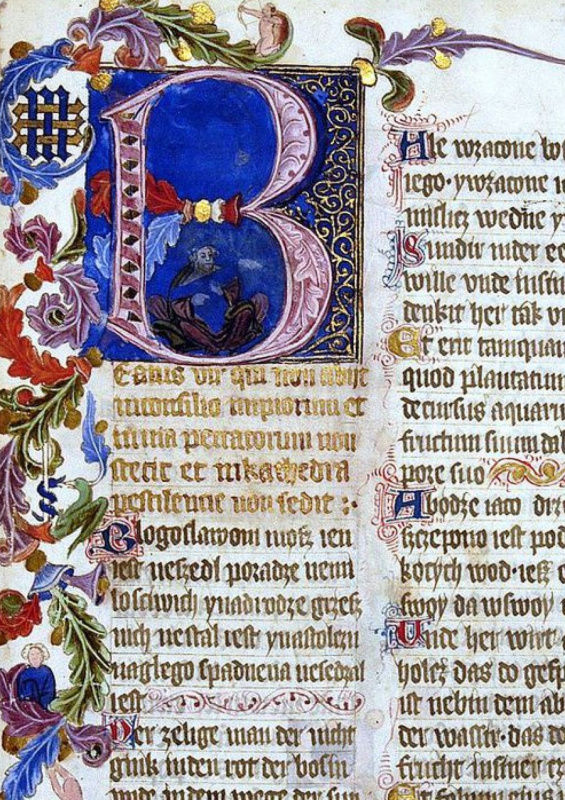 B
Eatus vir qui non abiit
in consilio impiorum et
in via peccatorum non
stetit et in kathedra
pestilencie non sedit :·
Blogoslawoni mosz ien
iest ne szedl po radze nemi
losciwich y na drodze grzesz
nich ne stal iest y na stolczu
naglego spadnena ne sedzal
iest
Der zelige man der nicht
gink in den rot der bosin
unde in dem wege der sun
Ale w zacone
iego · y w zacone
mislicz wedne y
Sundir in der ee
wille unde in
denkit her tak
Et erit tamquam
quod plantatum
decursus
fructum suum
pore suo
A bodze iaco
szczepono iest pod
kotych wod ·
swoy da w swoy
Unde her wirt
holcz das do
ist nebin dem
der wassir · das do
frucht in siner
Et folium eius